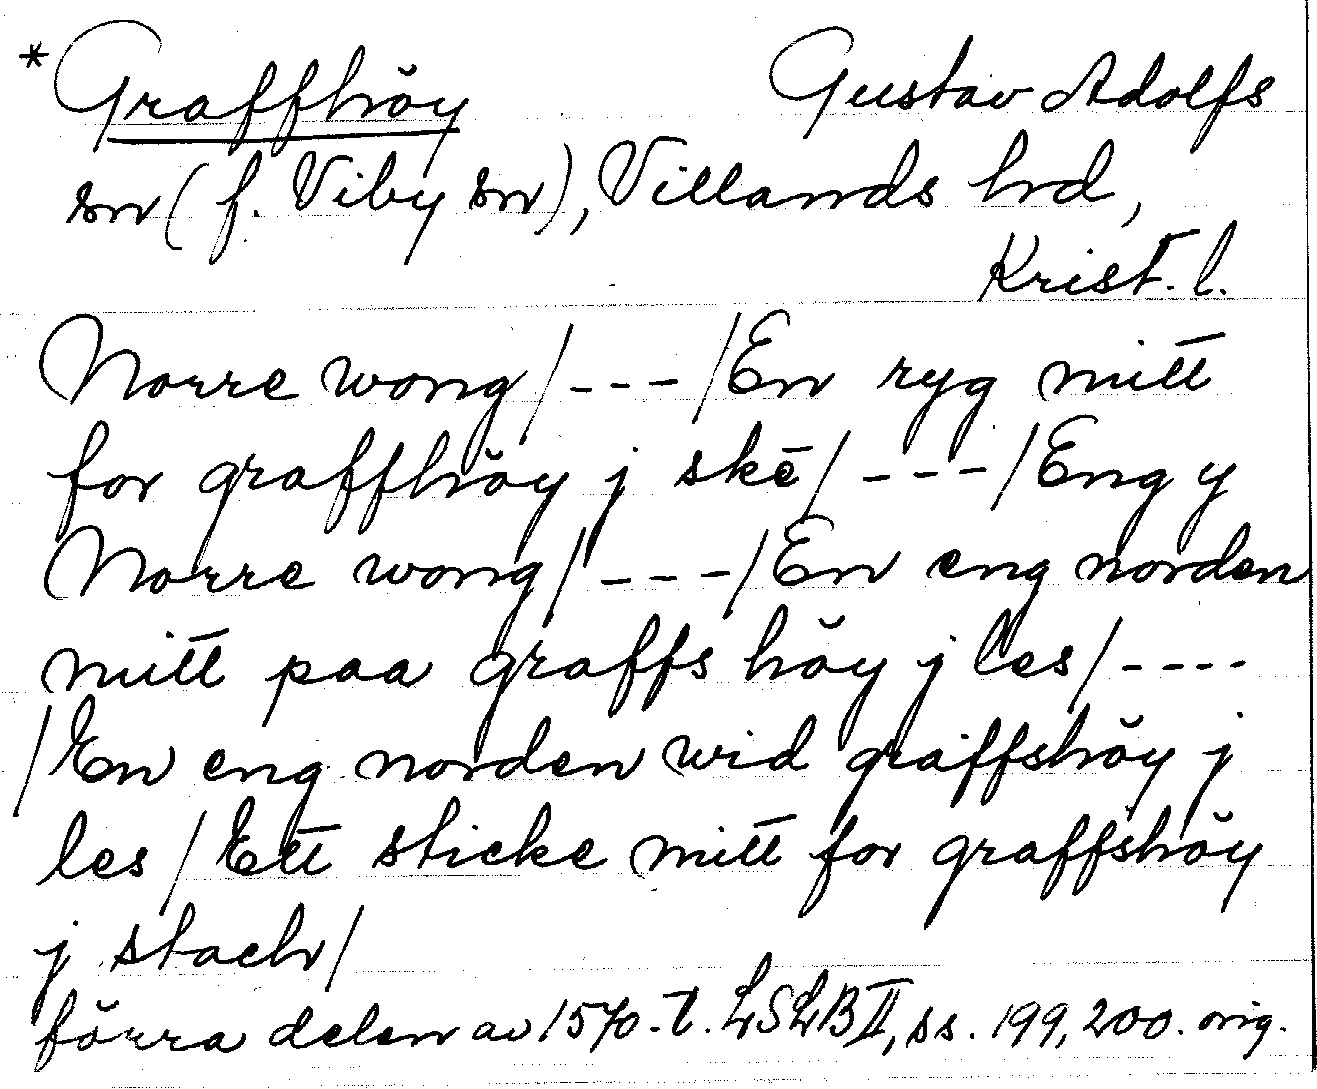 * Graffhöy Gustav Adolfs
sn (f. Viby sn), Villands hd,
Krist. l.
Norre wong / - - - / En ryg mitt
for graffhöy j skē / - - - / Eng y
Norre wong / - - - / En eng norden
mitt paa graffs höy j les / - - - -
/ En eng norden wid graffshöy j
les / Ett sticke mitt for graffshöy
j stach /
förra delen av 1570-t. LSLB II, ss. 199, 200. orig.